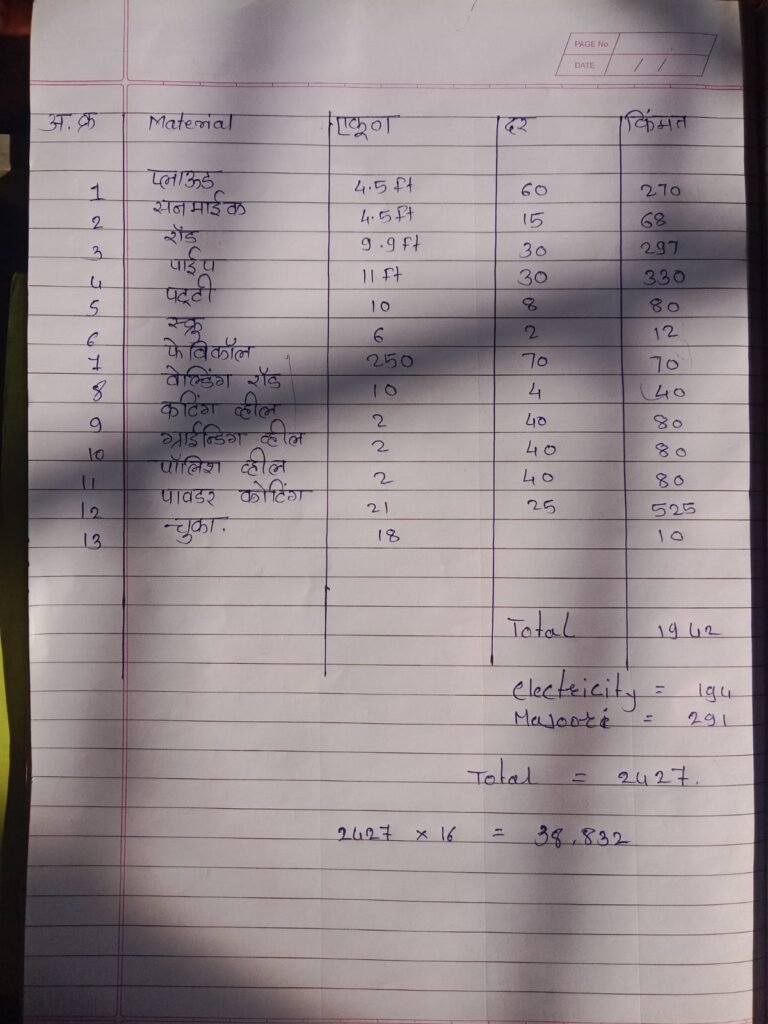 PAGE No.
DATE / /
अ.क्र Material एकूण दर किंमत
1 प्लाऊड 4.5 ft 60 270
2 सनमाईक 4.5 ft 15 68
3 रॉड 9.9 ft 30 297
4 पाईप 11 ft 30 330
5 पट्टी 10 8 80
6 स्क्रू 6 2 12
7 फेविकॉल 250 70 70
8 वेल्डिंग रॉड 10 4 40
9 कटिंग व्हील 2 40 80
10 ग्राईन्डिंग व्हील 2 40 80
11 पॉलिश व्हील 2 40 80
12 पावडर कोटिंग 21 25 525
13 चुका. 18 10
Total 1942
Electricity = 194
Majoori = 291
Total = 2427.
2427 × 16 = 38,832